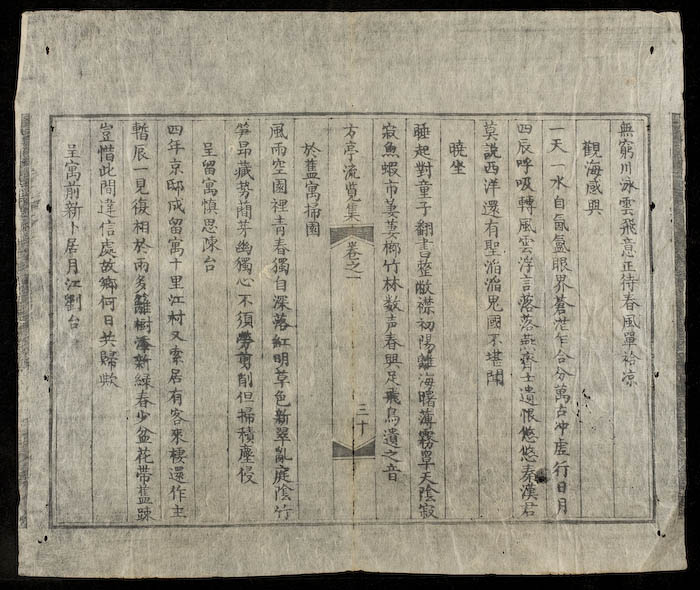 無窮川泳雲飛意正待春風單袷涼
觀海感興
一天一水自氤氳眼界蒼茫乍合分萬古冲虛行日月
四辰呼吸轉風雲浮言落落燕齊士遺恨悠悠秦漢君
莫說西洋還有聖滔滔鬼國不堪聞
曉坐
睡起對童子翻書整敝襟初陽離海曙薄霧罩天陰寂
寂魚蝦市萋萋榔竹林数声春興足飛鳥遺之音
方亭流覽集 卷之一 三十
於舊寓掃園
風雨空園裡青春獨自深落紅明草色新翠亂庭陰竹
笋昂藏芽蘭芽幽獨心不須勞剪削但掃積塵侵
呈留寓慎思陳台
四年京邸成留寓十里江村又索居有客來棲還作主
暫辰一見復相於雨多籬樹添新綠春少盆花帶舊踈
豈惜此間違信處故鄉何日共歸歟
呈寓前新卜居月江劉台